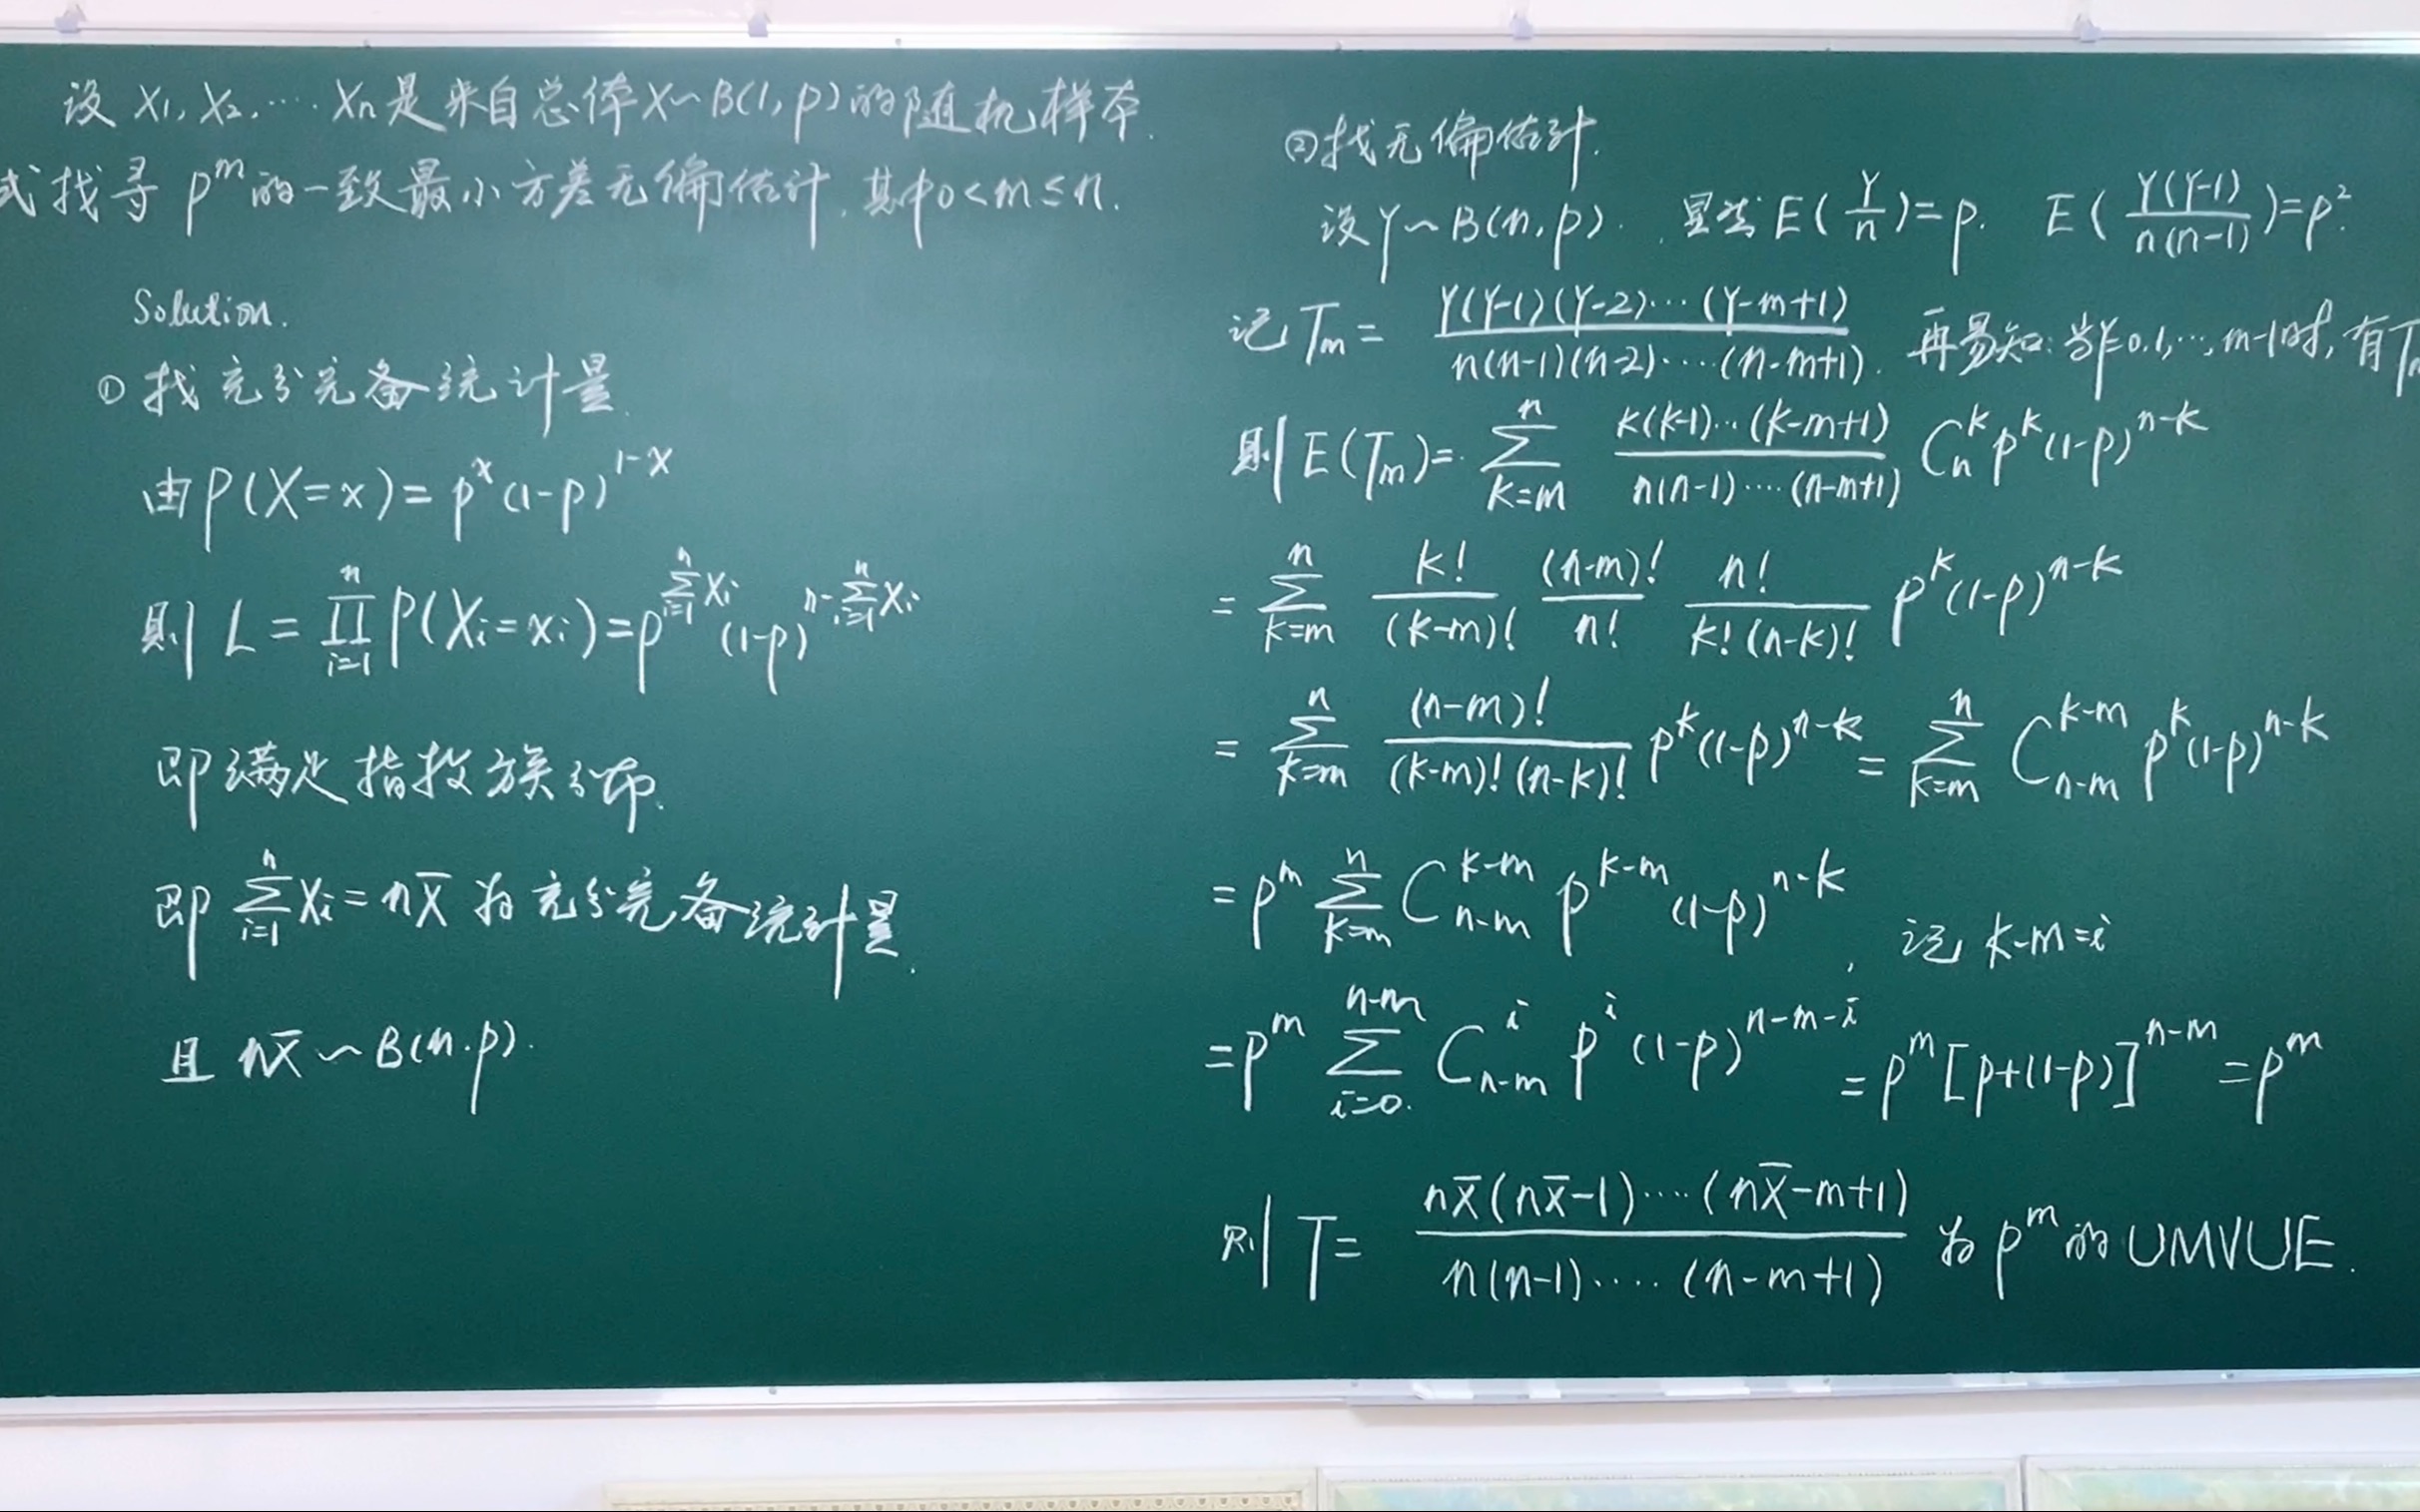 设 X₁, X₂, ···· Xₙ 是来自总体 X~B(1, p) 的随机样本.
式找寻 pᵐ 的一致最小方差无偏估计, 其中 0<m≤n.
Solution.
① 找充分完备统计量.
由 P(X=x) = pˣ(1-p)^{1-x}
则 L = ∏_{i=1}^{n} P(X_i=x_i) = p^{∑_{i=1}^{n} X_i} (1-p)^{n-∑_{i=1}^{n} X_i}
即满足指数族分布.
即 ∑_{i=1}^{n} X_i = nX̄ 为充分完备统计量.
且 nX̄ ~ B(n.p).
② 找无偏估计.
设 Y~B(n, p). 显然 E(Y/n)=p. E(Y(Y-1)/n(n-1))=p².
记 T_m = Y(Y-1)(Y-2)···(Y-m+1) / n(n-1)(n-2)····(n-m+1). 再易知: 当Y=0,1,···, m-1时, 有
则 E(T_m) = ∑_{k=m}^{n} k(k-1)···(k-m+1) / n(n-1)····(n-m+1) C_n^k p^k (1-p)^{n-k}
= ∑_{k=m}^{n} k!/(k-m)! (n-m)!/n! n!/k!(n-k)! p^k (1-p)^{n-k}
= ∑_{k=m}^{n} (n-m)!/(k-m)!(n-k)! p^k (1-p)^{n-k} = ∑_{k=m}^{n} C_{n-m}^{k-m} p^k (1-p)^{n-k}
= p^m ∑_{k=m}^{n} C_{n-m}^{k-m} p^{k-m} (1-p)^{n-k}, 记 k-m=i
= p^m ∑_{i=0}^{n-m} C_{n-m}^{i} p^i (1-p)^{n-m-i} = p^m [p+(1-p)]^{n-m} = p^m
则 T = nX̄(nX̄-1)····(nX̄-m+1) / n(n-1)·····(n-m+1) 为 p^m 的 UMVUE.